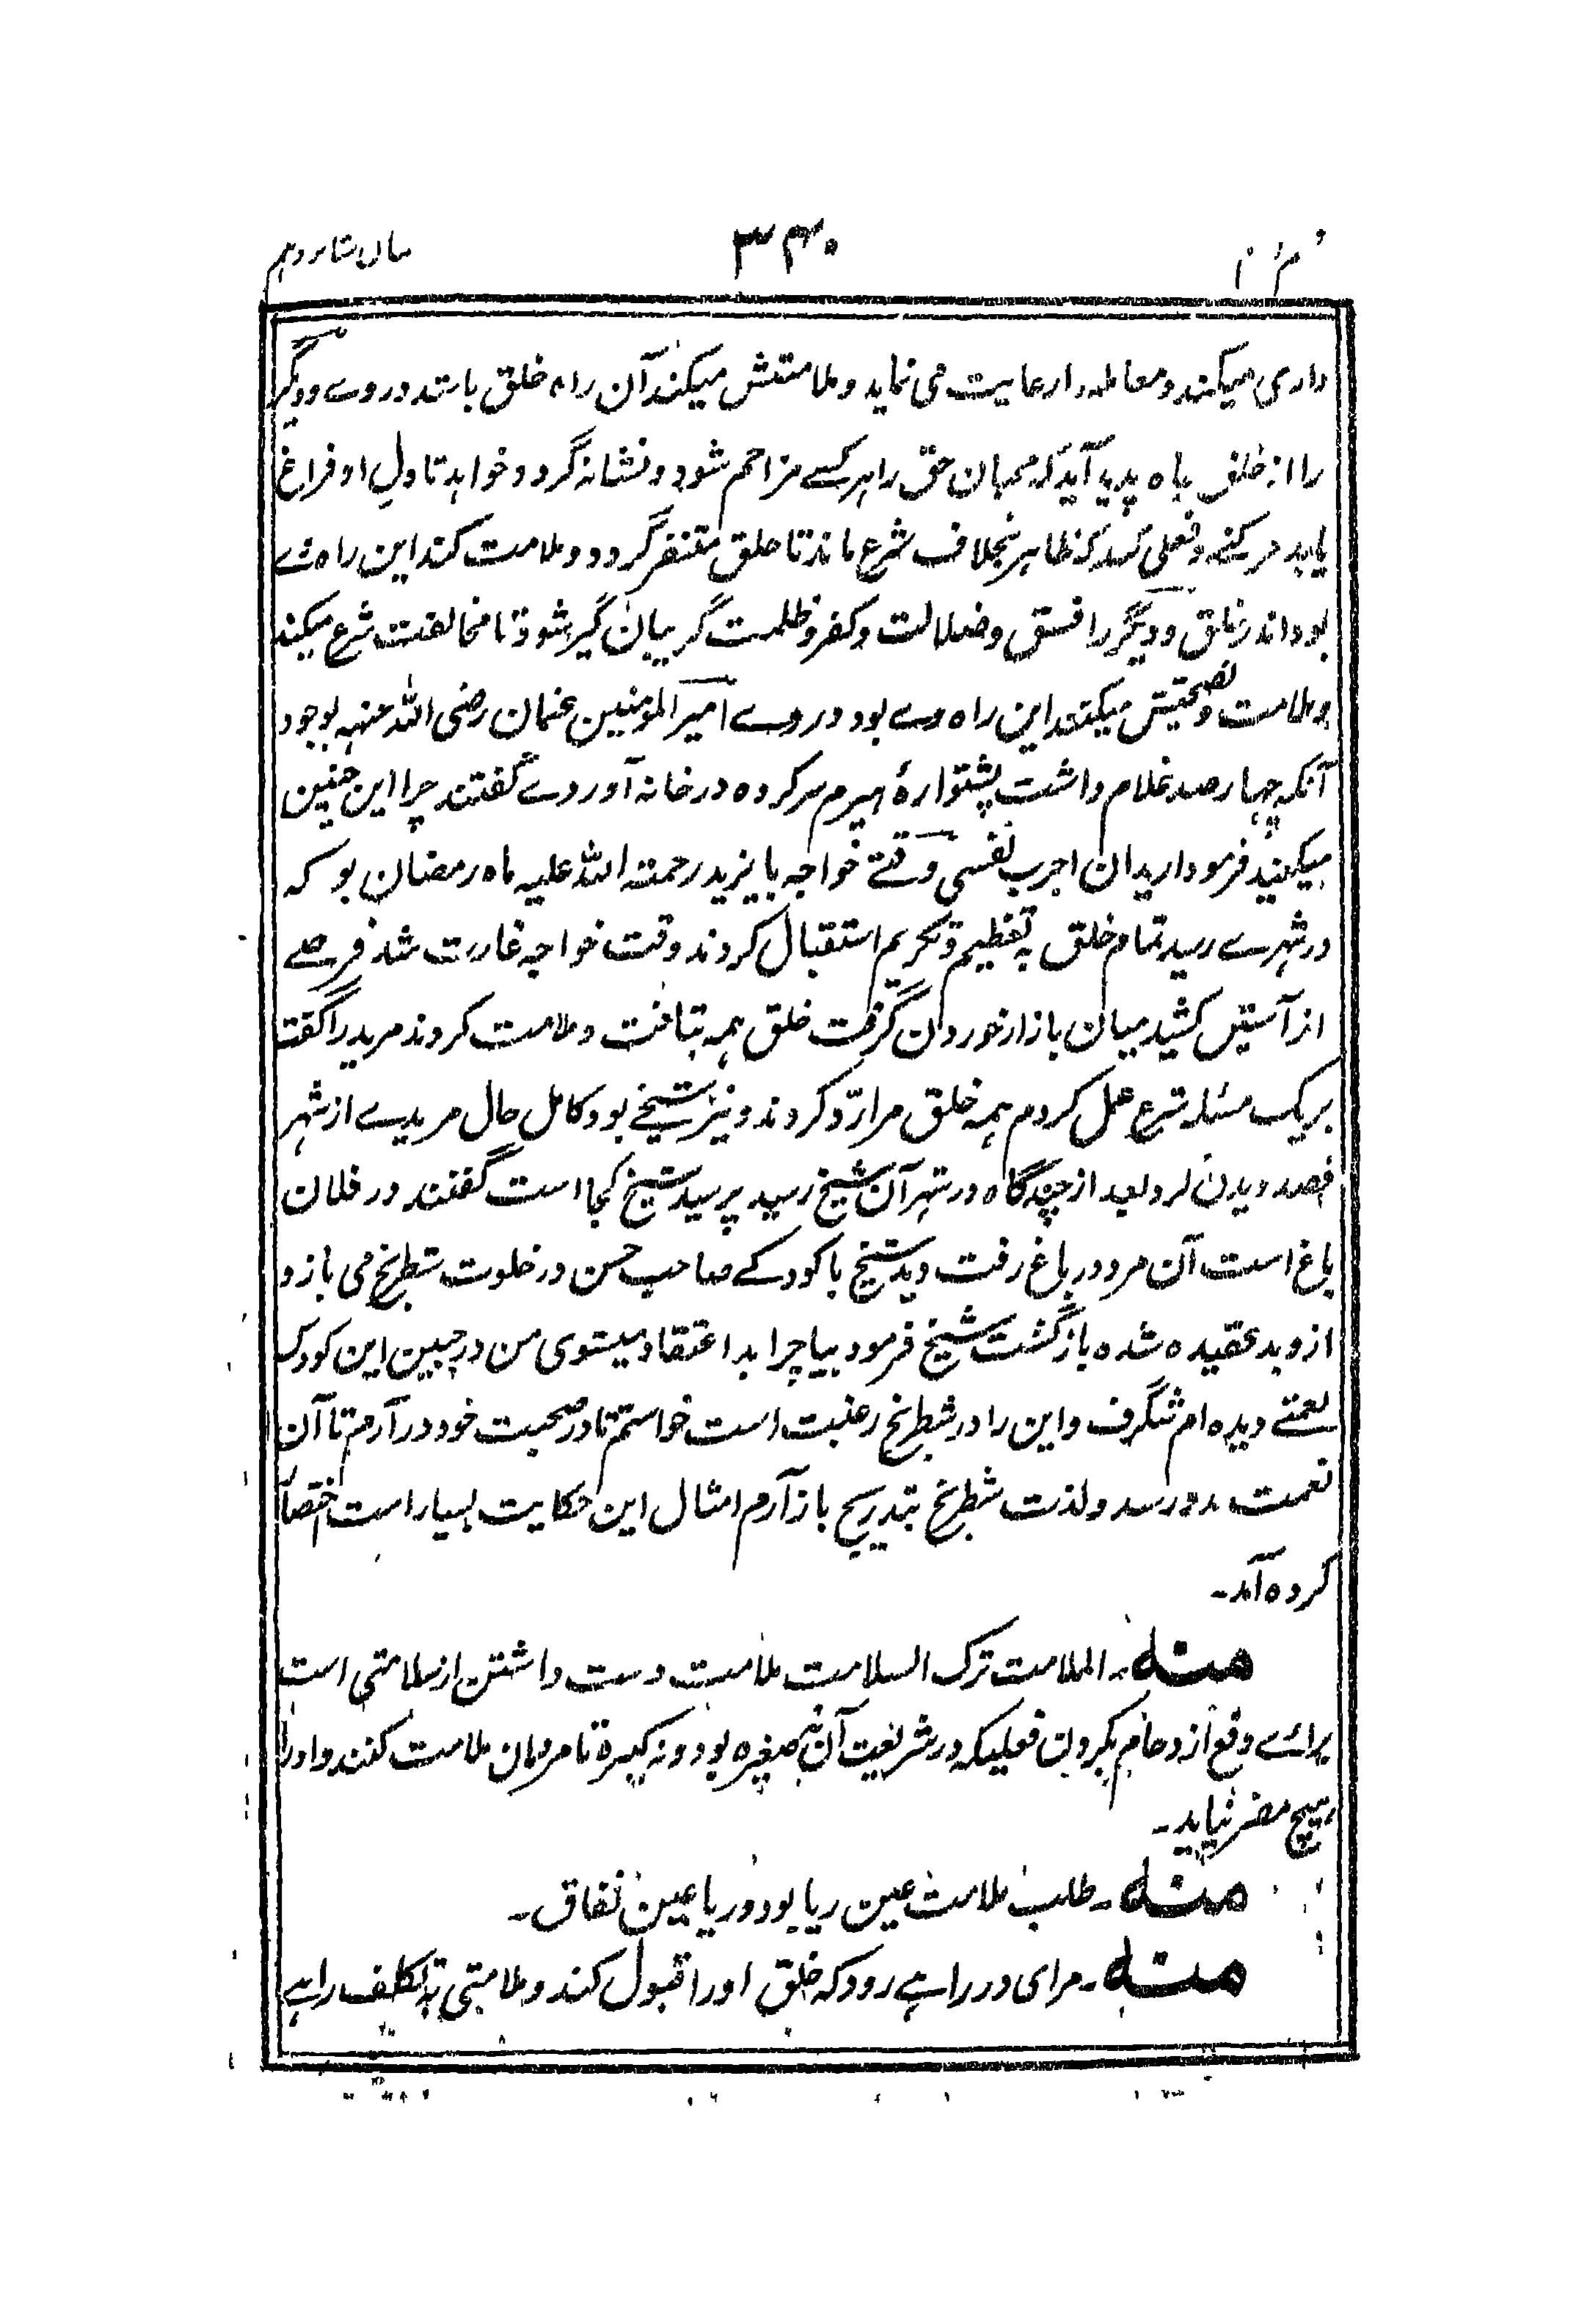 ۳۴۰
داری میکند و معامله را رعایت می نماید و ملامتش میکند آن راه خلق باشد دروے و دیگر
را از خلق باه پدید آید که محبان حق را هر کسے مزاحم شود و نشانه گردد و خواهد تا دل او فراغ
یابد فعلی کند که ظاهر بخلاف شرع ماند تا خلق متنفر گردد و ملامت کند این راه وے
بود اندر خلق و دیگر را فسق و ضلالت و کفر و ظلمت گریبان گیر شود تا مخالفت شرع میکند
و ملامت و نصیحتش میکنند این راه وے بود دروے امیر المومنین عثمان رضی الله عنهه بوجود
آنکه چهار صد غلام داشت پشتوارۀ هیزم سر کرده در خانه آوردے گفتند چرا این چنین
میکنید فرمود ارید ان اجرب نفسی وقتے خواجه بایزید رحمته الله علیه ماه رمضان بود که
در شهرے رسید تمام خلق به تعظیم و تکریم استقبال کردند وقت خواجه غارت شد قرصے
از آستین کشید میان بازار خوردن گرفت خلق همه بتافت و ملامت کردند مرید را گفت
بریک مسئله شرع عمل کردم همه خلق مرا ردّ کردند و نیز شیخے بود کامل حال مریدے از شهر
قصد دیدن کرد بعد از چند گاه در شهر آن شیخ رسید پرسید شیخ کجا است گفتند در فلان
باغ است آن مرد در باغ رفت دید شیخ با کودکے صاحب حسن در خلوت شطرنج می بازد و
ازو بد عقیده شده بازگشت شیخ فرمود بیا چرا بد اعتقاد میشوی من در جبین این کودک
نعمتے دیده ام شگرف و این را در شطرنج رغبت است خواستم تا در صحبت خود در آرم تا آن
نعمت بدو رسد و لذت شطرنج بتدریج باز آرم امثال این حکایت بسیار است اختصاً
کرده آمد۔
منه۔ الملامت ترک السلامت ملامت دست داشتن از سلامتی است
برائے دفع ازدحام بکردن فعلیکه در شریعت آن نه صغیره بود و نه کبیره تا مردمان ملامت کنند و او را
هیچ مضر نیاید۔
منه۔ طلب ملامت عین ریا بود و ریا عین نفاق۔
منه۔ مرای در راہے رود که خلق او را قبول کند و ملامتی به تکلف راہے